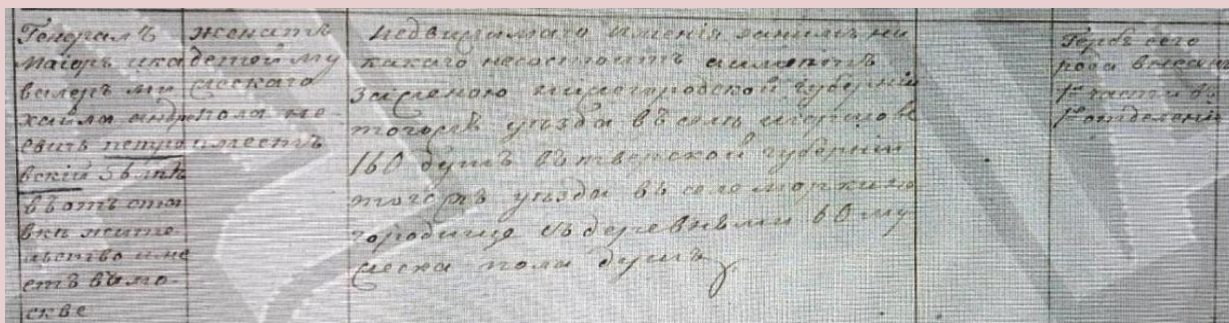 Генералъ
маiоръ ика
валеръ ми
хайла андре
евичь петро
вскiй 56 лѣтъ
въ отъ ста
вкѣ жите
льство име
етъ въ мо-
сквѣ
женатъ
детей му
жескаго
пола не-
имеетъ
недвижимаго имѣнiя занимъ ни
какого несостоитъ аимѣетъ
заженою нижегородской губернiи
тогожъ уѣзда въ селе
160 душъ въ тверской губернiи
тогожъ уѣзда въ селе
городище съ деревнями 60 му
жеска пола душъ
Гербъ сего
рода
1 части въ
1 отделенiи